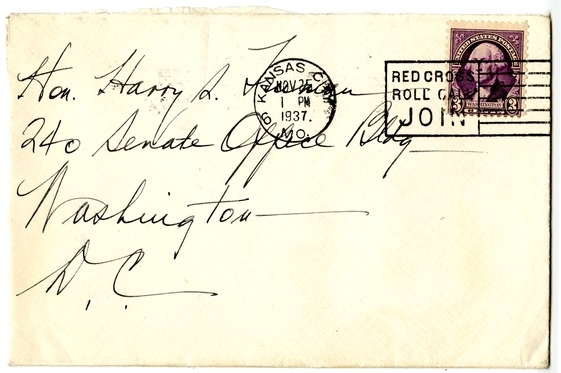 Hon. Harry S. Truman
240 Senate Office Bldg
Washington
D.C.
KANSAS CITY
NOV 25
1 PM
1937.
MO.
RED CROSS
ROLL CALL
JOIN
UNITED STATES POSTAGE
3 WASHINGTON 3